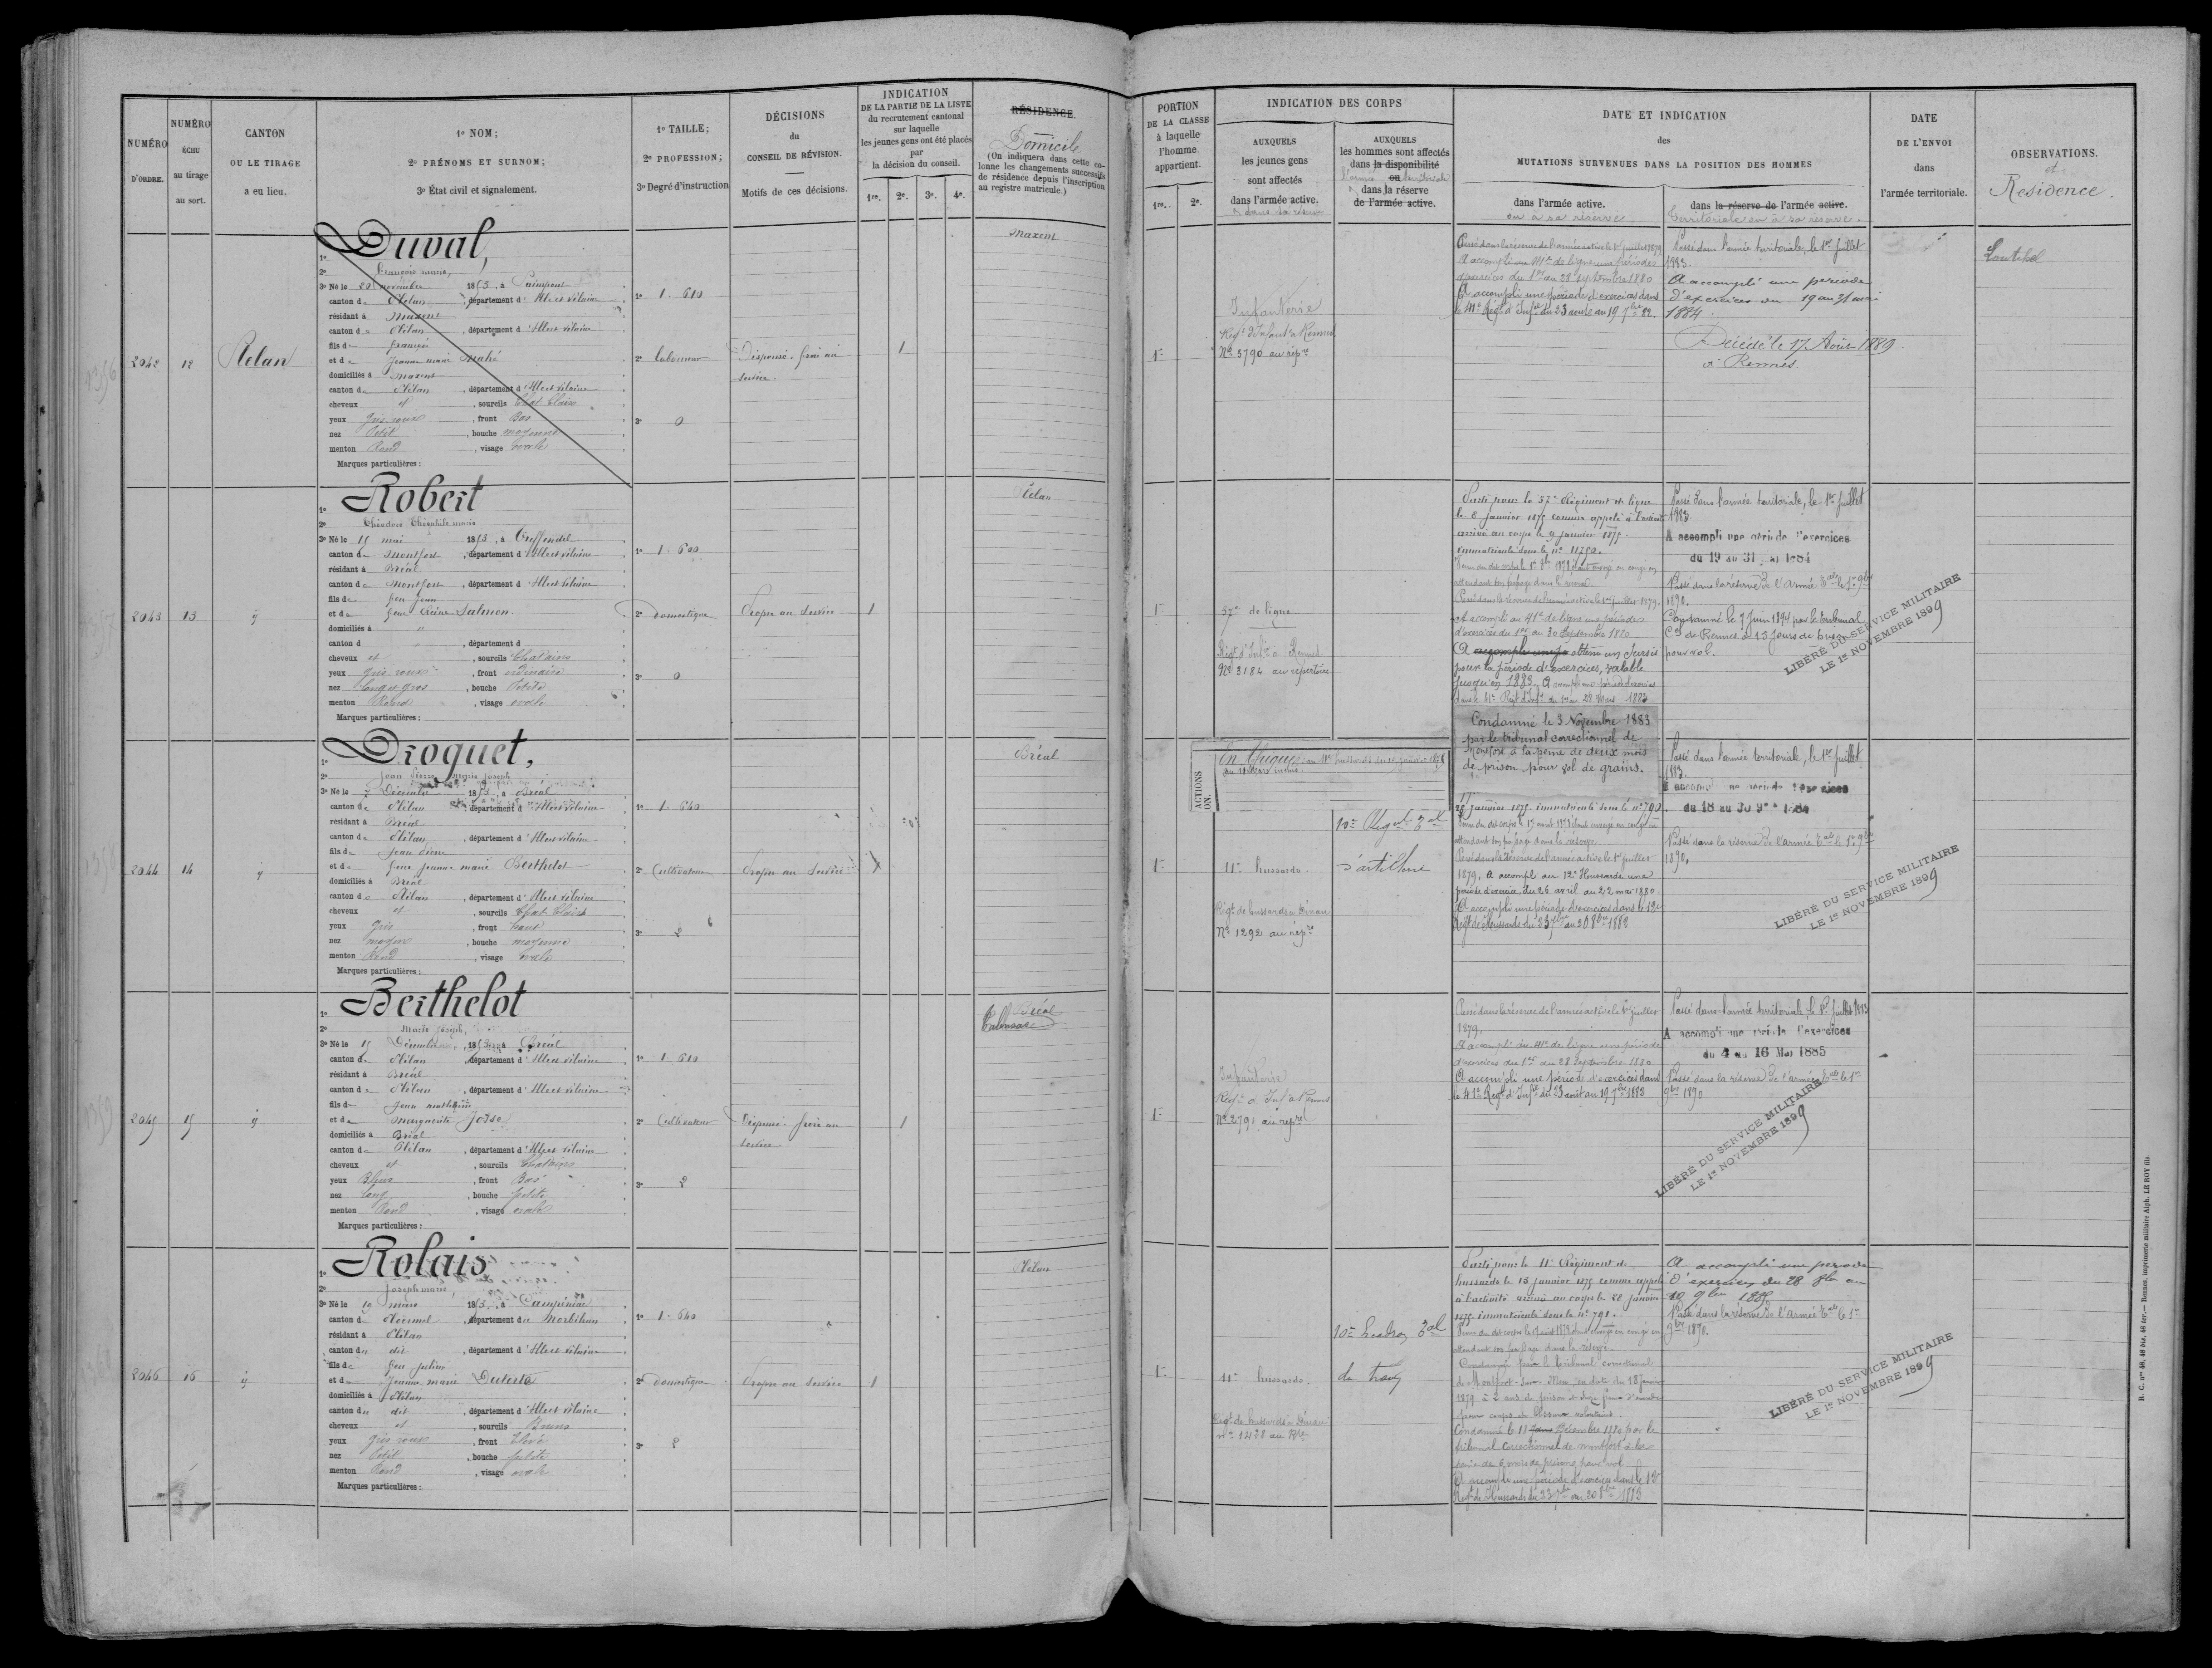 NUMÉRO
D'ORDRE.
NUMÉRO
ÉCHU
au tirage
au sort.
CANTON
OU LE TIRAGE
a eu lieu.
1º NOM;
2º PRÉNOMS ET SURNOM;
3º État civil et signalement.
1º TAILLE;
2º PROFESSION;
3º Degré d'instruction
DÉCISIONS
du
CONSEIL DE RÉVISION.
Motifs de ces décisions.
INDICATION
DE LA PARTIE DE LA LISTE
du recrutement cantonal
sur laquelle
les jeunes gens ont été placés
par
la décision du conseil.
1re. 2e. 3e. 4e.
RÉSIDENCE.
Domicile
(On indiquera dans cette co-
lonne les changements successifs
de résidence depuis l'inscription
au registre matricule.)
2042 12 Plelan
1º Duval,
2º François marie,
3º Né le 20 novembre 1853, à Paimpont
canton de Plélan, département d'Ille et Vilaine
résidant à Maxent
canton de Plélan, département d'Ille et Vilaine
fils de François
et de Jeanne marie Mahé
domiciliés à Maxent
canton de Plélan, département d'Ille et Vilaine
cheveux et, sourcils Chat. Clairs
yeux Gris roux, front Bas
nez Petit, bouche moyenne
menton Rond, visage ovale
Marques particulières:
1º 1.610
2º laboureur
3º 0
Dispensé. frère au
service.
1
Maxent
2043 13 "
1º Robert
2º Théodore Théophile marie
3º Né le 15 mai 1853, à Treffendel
canton de Montfort, département d'Ille et Vilaine
résidant à Bréal
canton de Montfort, département d'Ille et Vilaine
fils de feu Jean
et de feue Reine Salmon.
domiciliés à "
canton d , département d
cheveux et, sourcils Chatains
yeux Gris roux, front ordinaire
nez long et gros, bouche Petite
menton Rond, visage ovale
Marques particulières:
1º 1.600
2º domestique
3º 0
Propre au Service
1
Plelan
2044 14 "
1º Droguet,
2º Jean Pierre Marie Joseph
3º Né le 7 Décembre 1853, à Bréal
canton de Plélan, département d'Ille et Vilaine
résidant à Bréal
canton de Plélan, département d'Ille et Vilaine
fils de Jean Pierre
et de feue Jeanne marie Berthelot
domiciliés à Bréal
canton de Plélan, département d'Ille et Vilaine
cheveux et, sourcils Chat. Clairs
yeux Gris, front haut
nez moyen, bouche moyenne
menton Rond, visage ovale
Marques particulières:
1º 1.640
2º Cultivateur
3º 2
Propre au Service
1
Bréal
2045 15 "
1º Berthelot
2º Marie Joseph,
3º Né le 15 Décembre, 1853, à Bréal
canton de Plélan, département d'Ille et Vilaine
résidant à Bréal
canton de Plélan, département d'Ille et Vilaine
fils de Jean mathurin
et de Marguerite Josse
domiciliés à Bréal
canton de Plélan, département d'Ille et Vilaine
cheveux et, sourcils Chatains
yeux Bleus, front Bas
nez long, bouche petite
menton Rond, visage ovale
Marques particulières:
1º 1.610
2º Cultivateur
3º 2
Dispensé. frère au
service
1
Bréal
2046 16 "
1º Rolais
2º Joseph marie,
3º Né le 10 mars 1853, à Campénéac
canton de Ploermel, département du Morbihan
résidant à Plélan
canton du dit, département d'Ille et Vilaine
fils de feu Julien
et de Jeanne marie Duterte
domiciliés à Plélan
canton du dit, département d'Ille et Vilaine
cheveux et, sourcils Bruns
yeux Gris roux, front Elevé
nez Petit, bouche petite
menton Rond, visage ovale
Marques particulières:
1º 1.640
2º domestique
3º 2
Propre au Service
1
Plelan
PORTION
DE LA CLASSE
à laquelle
l'homme
appartient.
1re. 2e.
INDICATION DES CORPS
AUXQUELS
les jeunes gens
sont affectés
dans l'armée active.
& dans sa réserve
AUXQUELS
les hommes sont affectés
dans la disponibilité
ou
l'armée territoriale
& dans la réserve
de l'armée active.
DATE ET INDICATION
des
MUTATIONS SURVENUES DANS LA POSITION DES HOMMES
dans l'armée active.
ou à sa réserve
dans la réserve de l'armée active.
territoriale ou à sa réserve.
DATE
DE L'ENVOI
dans
l'armée territoriale.
OBSERVATIONS.
et
Residence.
1re
Infanterie
Regt d'Infant. à Rennes
Nº 3790 au repre
Passé dans la réserve de l'armée active le 1er juillet 1879
A accompli au 41e de ligne une période
d'exercices du 1er au 28 septembre 1880
A accompli une période d'exercices dans
le 41e Régt d'Infie du 23 août au 19 7bre 82.
Passé dans l'armée territoriale, le 1er Juillet
1883.
A accompli une période
d'exercices du 19 au 31 mai
1884.
Décédé le 17 Août 1889.
à Rennes
1re
57e de ligne
Régt d'Infie à Rennes
Nº 3184 au répertoire
Parti pour le 57e Régiment de ligne
le 8 janvier 1875 comme appelé à l'activité
arrivé au corps le 9 janvier 1875
immatriculé sous le nº 11750.
attendant son passage dans la réserve.
Passé dans la réserve de l'armée active le 1er juillet 1879.
A accompli au 41e de ligne une période
d'exercices du 1er au 30 Septembre 1880
A accompli une pé obtenu un sursis
pour la période d'exercices, valable
jusqu'en 1883. A accompli une période d'exercices
dans le 41e Régt d'Infie du 1er au 28 Mars 1883
Condamné le 3 Novembre 1883
par le tribunal correctionnel de
Montfort à la peine de deux mois
de prison pour vol de grains.
Passé dans l'armée territoriale, le 1er Juillet
1883.
A accompli une période d'exercices
du 19 au 31 Mai 1884
Passé dans la réserve de l'Armée Tale le 1er 9bre
1890.
Condamné le 7 Juin 1894 par le tribunal
Cel de Rennes à 15 jours de prison
pour vol.
LIBÉRÉ DU SERVICE MILITAIRE
LE 1er NOVEMBRE 1899
ACTIONS
ON.
1re
11e hussards.
Régt de hussards à Dinan
Nº 1292 au repre
10e Régt Tal
d'artillerie
25 janvier 1875. immatriculé sous le nº 790.
attendant son passage dans la réserve
Passé dans la réserve de l'armée active le 1er juillet
1879. A accompli au 12e Houssards une
période d'exercice, du 26 avril au 22 mai 1880
A accompli une période d'exercices dans le 12e
Régt de Hussards du 23 7bre au 20 8bre 1882
Passé dans l'armée territoriale, le 1er Juillet
1883.
du 18 au 30
Passé dans la réserve de l'armée Tale le 1er 9bre
1890.
LIBÉRÉ DU SERVICE MILITAIRE
LE 1er NOVEMBRE 1899
1re
Infanterie
Regt d'Inf. à Rennes
Nº 2791 au repre
Passé dans la réserve de l'armée active le 1er juillet
1879.
A accompli au 41e de ligne une période
d'exercices du 1er au 28 Septembre 1880
A accompli une période d'exercices dans
le 41e Régt d'Infie du 23 août au 19 7bre 1883
Passé dans l'armée territoriale, le 1er Juillet 1883
A accompli une période d'exercices
du 4 au 16 Mai 1885
Passé dans la réserve de l'armée Tale le 1er
9bre 1890
LIBÉRÉ DU SERVICE MILITAIRE
LE 1er NOVEMBRE 1899
1re
11e hussards.
Régt de hussards à Dinan
nº 1438 au Rre
10e Escadron Tal
du train
Parti pour le 11e Régiment de
hussards le 15 janvier 1875 comme appelé
à l'activité arrivé au corps le 22 janvier
1875 immatriculé sous le nº 791.
attendant son passage dans la réserve.
Condamné par le Tribunal correctionnel
de Montfort sur Meu, en date du 18 Janvier
pour coups et blessures volontaires.
Condamné le 11 Décembre 1880 par le
tribunal correctionnel de montfort à la
peine de 6 mois de prison pour vol.
A accompli une période d'exercices dans le 12e
Régt de Hussards du 23 7bre au 20 8bre 1883
A accompli une période
d'exercices du 28 8bre au
10 9bre 1885
Passé dans la réserve de l'Armée Tale le 1er
9bre 1890.
LIBÉRÉ DU SERVICE MILITAIRE
LE 1er NOVEMBRE 1899
R. C. nos 40, 48 bis, 48 ter.— Rennes, imprimerie militaire Alph. LE ROY fils.